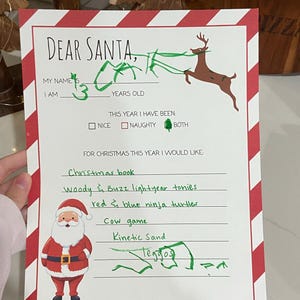 DEAR SANTA,
MY NAME IS
I AM 3 YEARS OLD
THIS YEAR I HAVE BEEN
NICE NAUGHTY BOTH
FOR CHRISTMAS THIS YEAR I WOULD LIKE:
Christmas book
Woody & Buzz lightyear tonies
red & blue ninja turtles
Cow game
Kinetic Sand